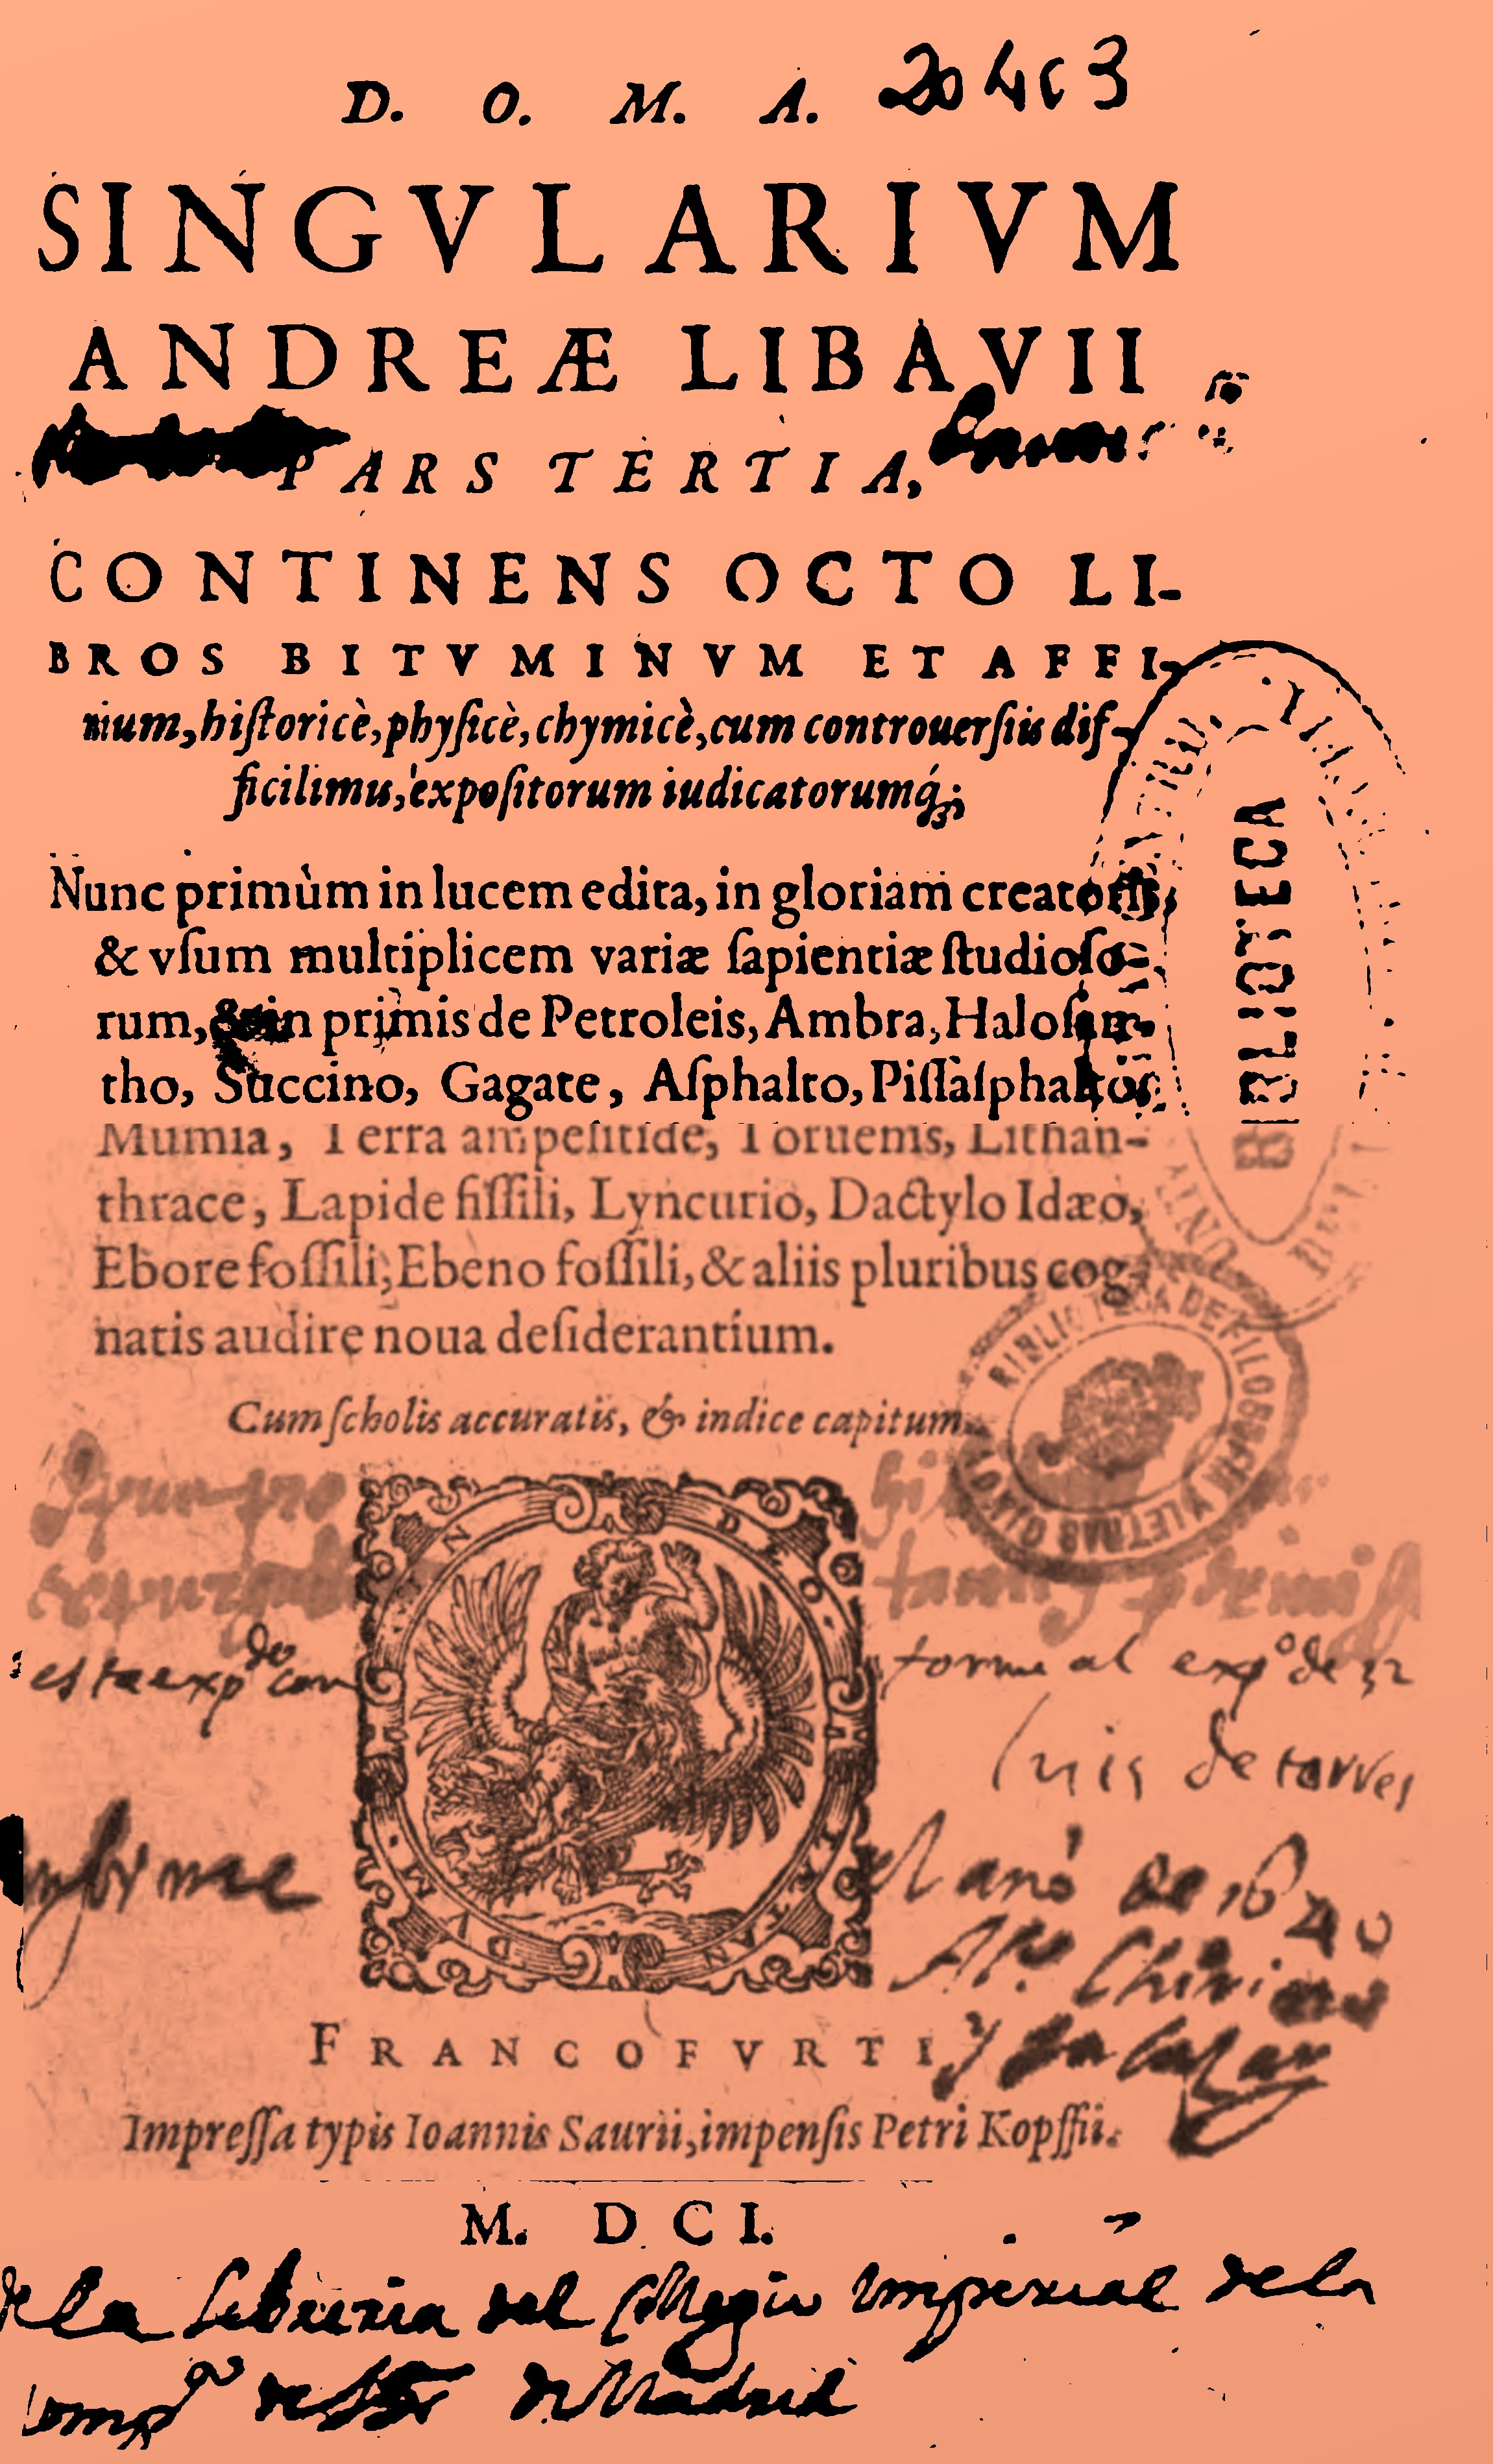 D. O. M. A. 20403
SINGVLARIVM
ANDREÆ LIBAVII
PARS TERTIA,
CONTINENS OCTO LI-
BROS BITVMINVM ET AFFI-
nium, hiſtoricè, phyſicè, chymicè, cum controuerſiis dif-
ficilimis, expoſitorum iudicatorumq́;
Nunc primùm in lucem edita, in gloriam creatoris,
& vſum multiplicem variæ ſapientiæ ſtudioſo-
rum, & in primis de Petroleis, Ambra, Haloſan-
tho, Succino, Gagate, Aſphalto, Piſſaſphalto,
Mumia, Terra ampelitide, Toruenis, Lithan-
thrace, Lapide fiſſili, Lyncurio, Dactylo Idæo,
Ebore foſſili, Ebeno foſſili, & aliis pluribus cog-
natis audire noua deſiderantium.
Cum ſcholis accuratis, & indice capitum.
BIBLIOTECA
BIBLIOTECA DE FILOSOFIA Y LETRAS
esta expdo con forme al expo de 32
luis de torres
conforme el ano de 1640
FRANCOFVRTI
Impreſſa typis Ioannis Saurii, impenſis Petri Kopffii.
M. DCI.
de la libreria del Collegio imperial de la
Compa de Jhs de Madrid